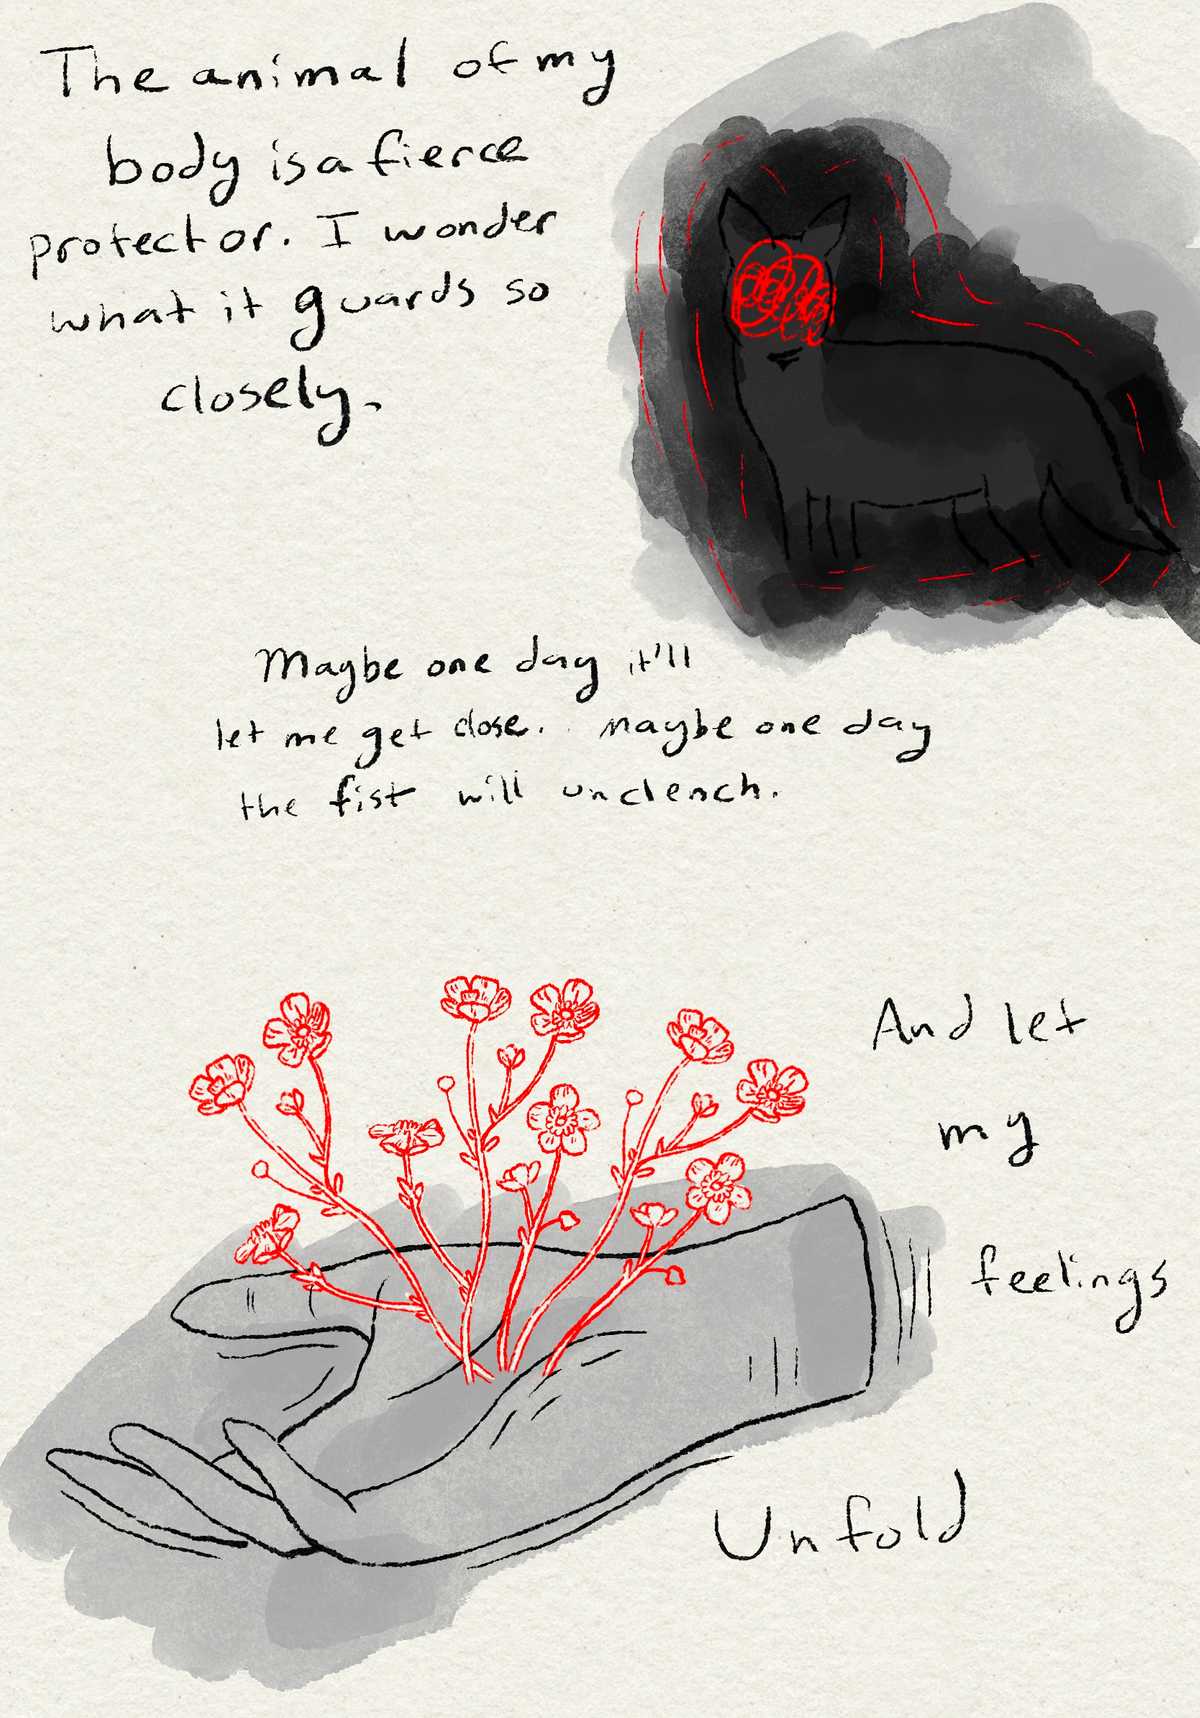 The animal of my
body is a fierce
protector. I wonder
what it guards so
closely.
Maybe one day it'll
let me get close. maybe one day
the fist will unclench.
And let
my
feelings
Unfold